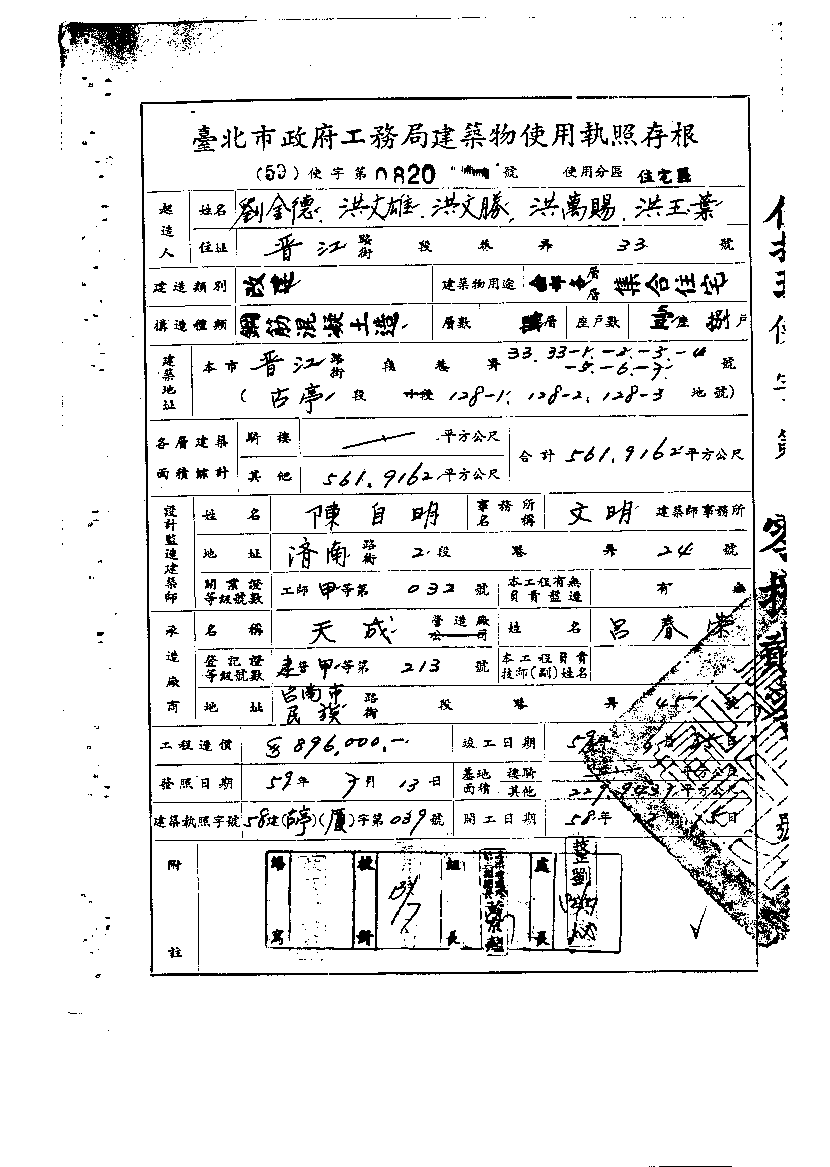 臺北市政府工務局建築物使用執照存根
(59)使字第0820號 使用分區 住宅區
起造人 姓名 劉金德、洪文雄、洪文勝、洪萬賜、洪玉葉
住址 晋江路街 段 巷 弄 33 號
建造類別 改建 建築物用途 層層 集合住宅
構造種類 鋼筋混凝土造 層數 層 座戶數 座 捌戶
建築地址 本市 晋江路街 段 巷 弄 33.33-1.-2.-3.-4 -5.-6.-7. 號
(古亭 段 小段 128-1. 128-2. 128-3 地號)
各層建築面積總計 騎樓 平方公尺 合計 561.9162 平方公尺
其他 561.9162 平方公尺
設計監造建築師 姓名 陳自明 事務所名稱 文明 建築師事務所
地址 濟南路街 2段 巷 弄 24 號
開業證等級號數 工師甲等第 032 號 本工程有無負責監造 有 無
承造廠商 名稱 天成 營造廠公司 姓名 呂春榮
登記證等級號數 甲等第 213 號 本工程負責技師(副)姓名
地址 台南市民族路街 段 巷 弄 45 號
工程造價 896,000.- 竣工日期 59年 6月 日
發照日期 59年 7月 13日 基地面積 樓騎 平方公尺
其他 平方公尺
建築執照字號 58建(古亭)(厦)字第039號 開工日期 58年 15日
附註 繕寫 校對 組長 處長